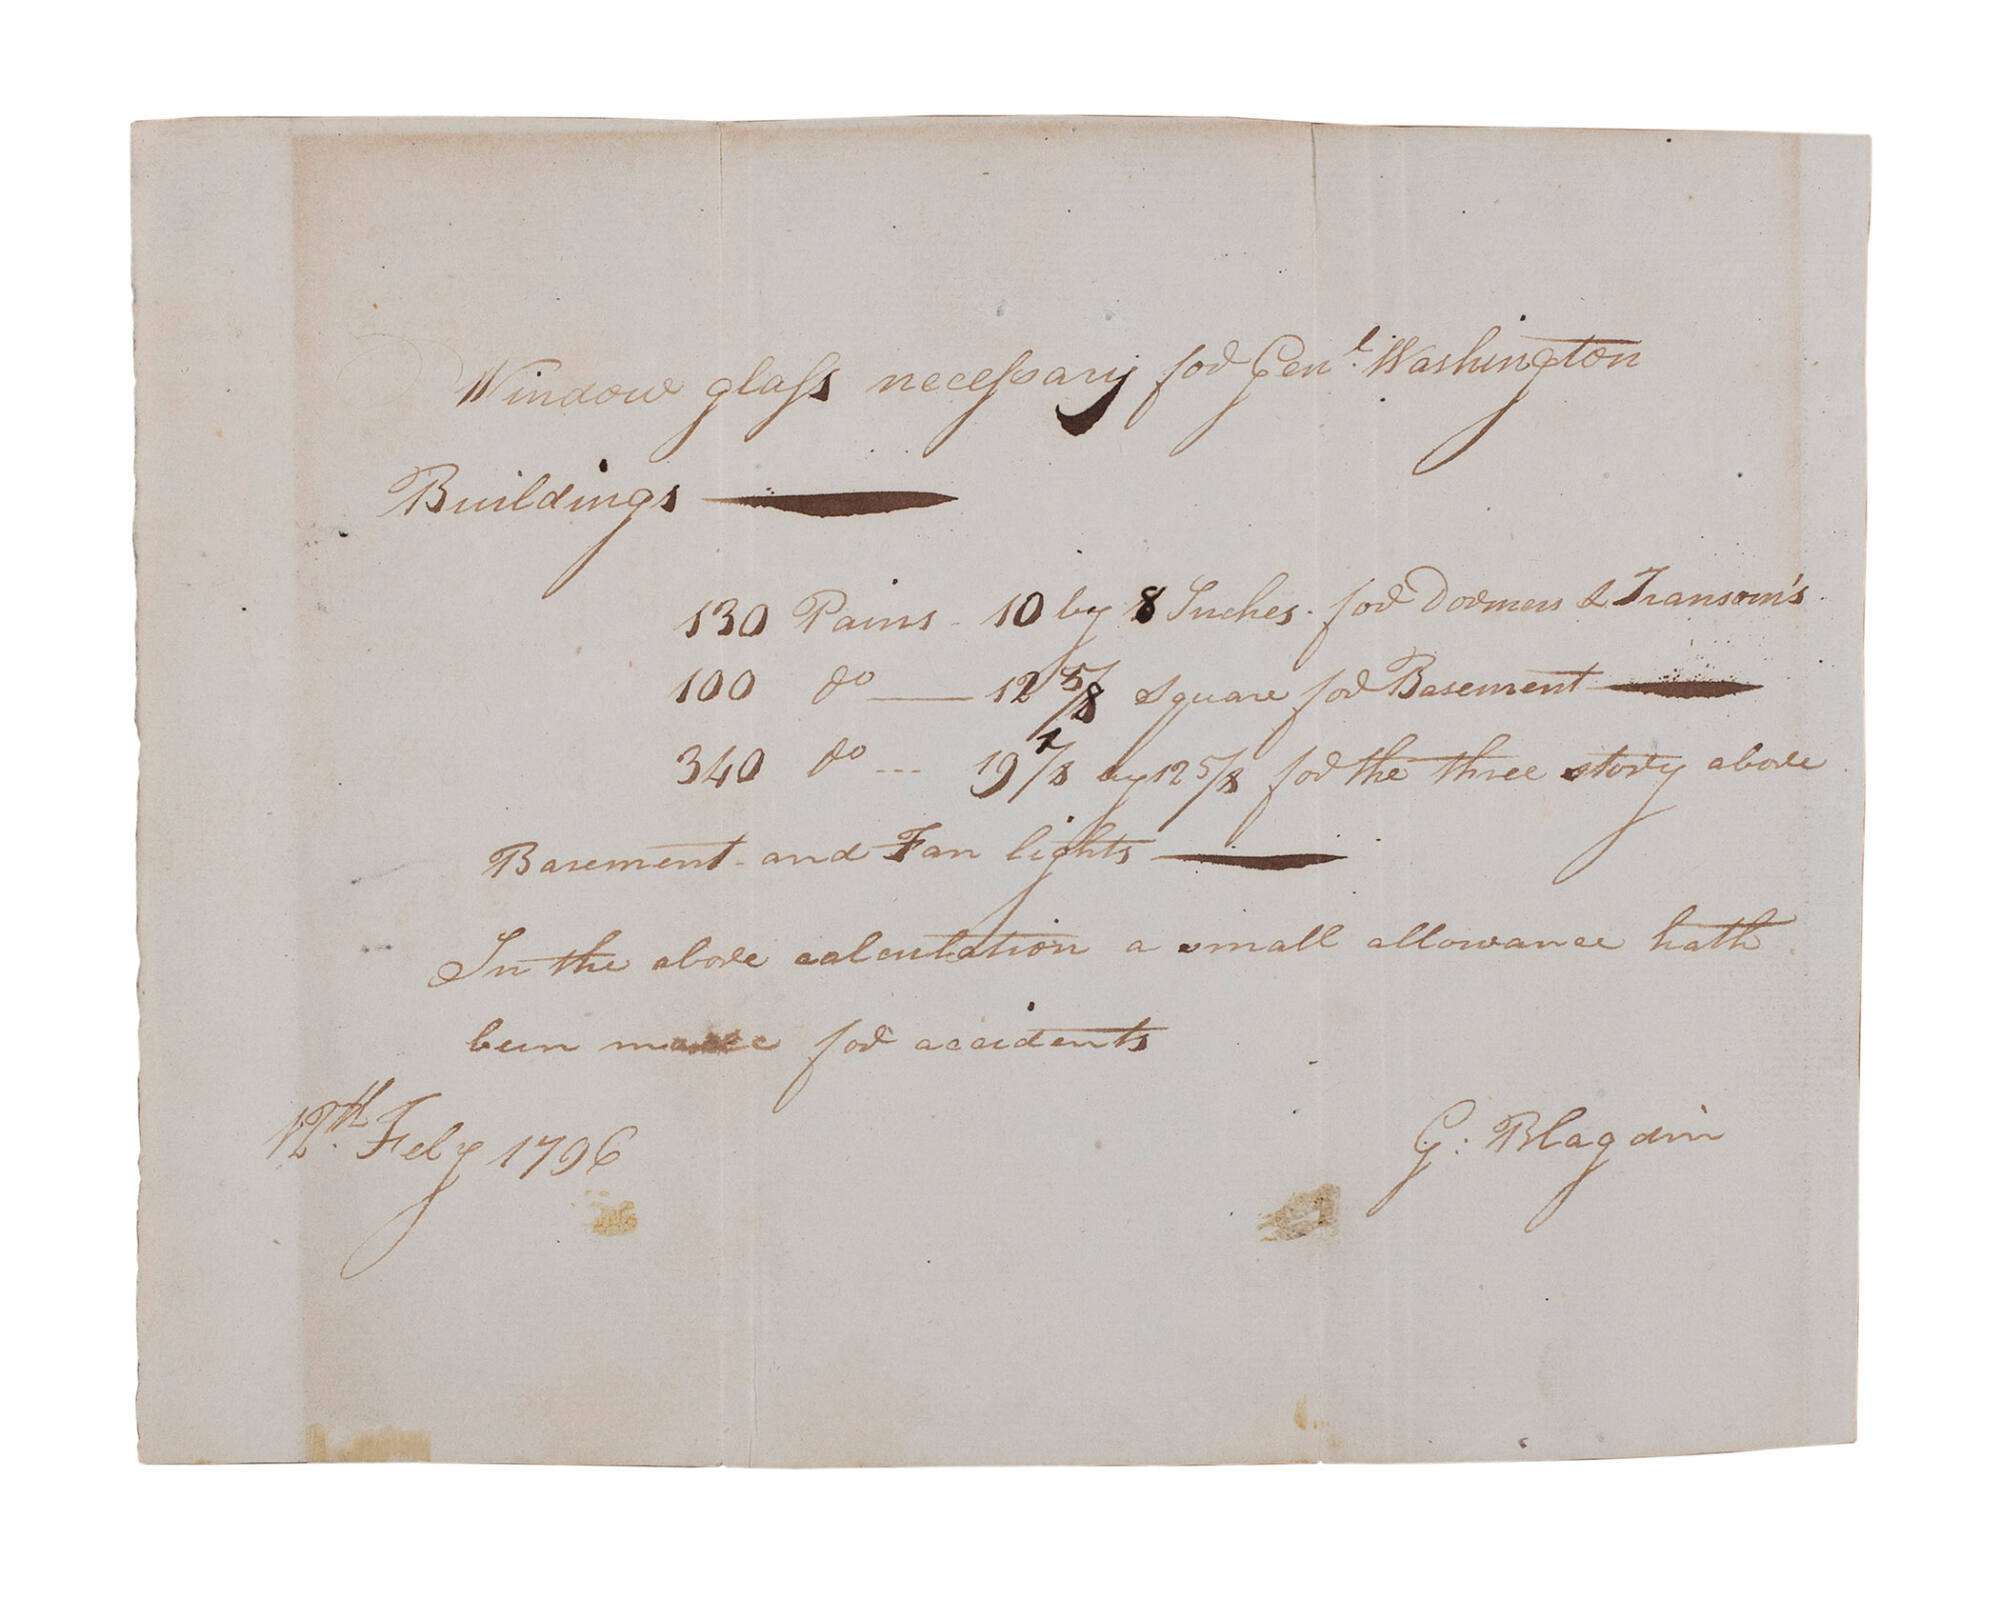 Window glass necessary for Genl. Washington
Buildings
130 Pains - 10 by 8 Inches. for Dormers & Transom's
100 do 12 5/8 square for Basement
340 do --- 19 7/8 by 12 5/8 for the three story above
Basement - and Fan lights
In the above calculation a small allowance hath
been made for accidents
12th. Feby 1796
G: Blagdin